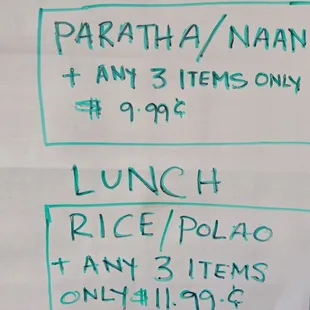 PARATHA/NAAN
+ ANY 3 ITEMS ONLY
$ 9.99¢
LUNCH
RICE/POLAO
+ ANY 3 ITEMS
ONLY $11.99.¢